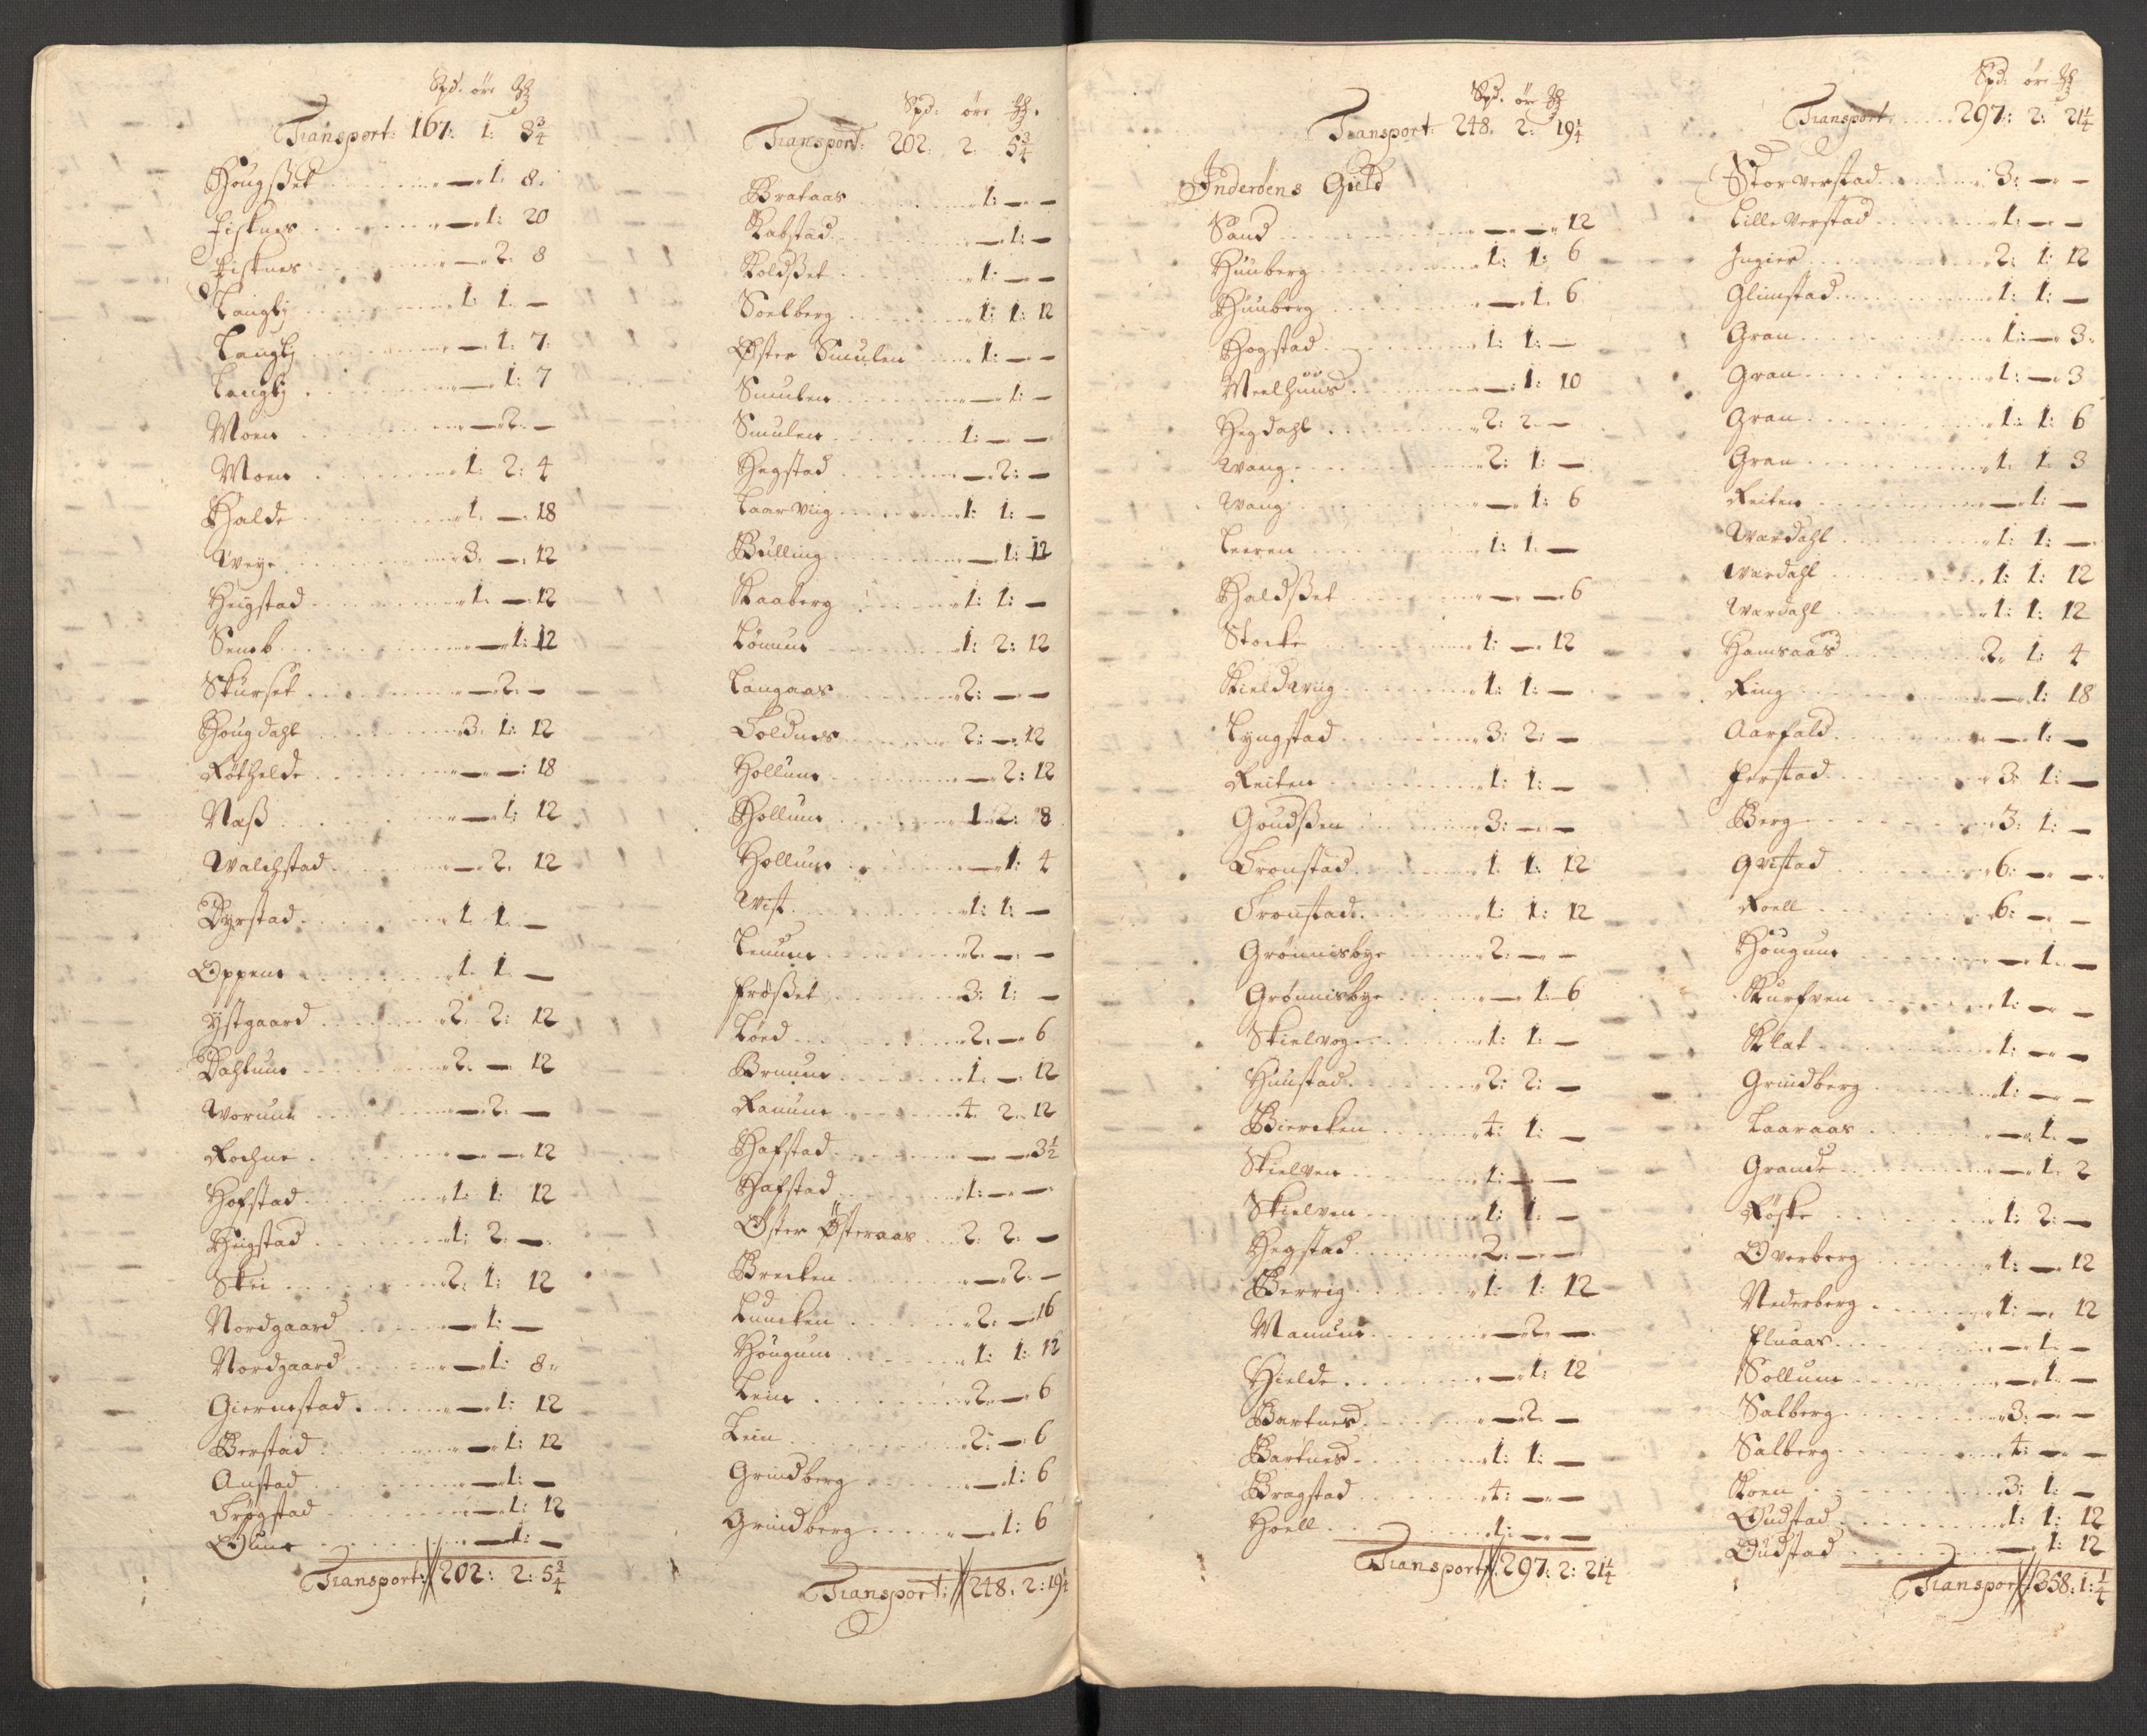 Spd. öre
Transport: 167: 1: 3 3/4
Hougßet — 1. 8.
Fisknes — 1: 20
Fisknes — 2. 8
Langbÿ 1: 1. —
Langbÿ — 1. 7.
Langbÿ — 1: 7
Moen — 2. —
Moen 1: 2: 4
Halde 1. — 18
Weÿe 3. — 12
Heÿgstad 1. — 12
Semb — 1: 12
Skurset — 2. —
Hougdahl 3. 1: 12
Röthelde — — 18
Næß — 1: 12
Walchstad — 2. 12
Dyrstad 1. 1. —
Oppem 1. 1. —
Ÿstgaard 2. 2: 12
Dahlum 2. — 12
Worum — 2. —
Rochne — — 12
Hofstad 1: 1: 12
Heigstad 1: 2. —
Skei 2: 1: 12
Nordgaard — 1: —
Nordgaard — 1: 8.
Giermstad — 1: 12
Berstad — 1: 12
Anstad — 1: —
Frögstad — 1: 12
Olum — 1: —
Transport: 202: 2: 5 3/4
Spd: öre
Transport: 202. 2. 5 3/4
Brataas 1: — —
Rabstad — 1: —
Koldßet 1: — —
Soelberg 1: 1: 12
Öster Smulen 1: — —
Smulen — 1: —
Smulen 1: — —
Hegstad — 2: —
Laarviig 1: 1: —
Bulling — 1: 12
Kaaberg 1: 1: —
Lömum 1: 2: 12
Langaas 2: — —
Foldnes 2: — 12
Hollum — 2: 12
Hollum 1. 2: 8
Hollum — 1: 4
Wist 1: 1: —
Lenum 2. — —
Fröset 3: 1: —
Löed 2. — 6
Brunum 1. — 12
Ranum 4. 2. 12
Hafstad — — 3 1/2
Hafstad 1: — —
Öster Österaas 2. 2. —
Brecken — 2. —
Luncken 2. — 16
Hougum 1: 1: 12
Lein 2. — 6
Lein 2: — 6
Grindberg — 1: 6
Grindberg — 1: 6
Transport: 248. 2: 19 1/4
Spd. öre
Transport: 248. 2: 19 1/4
Inderöens Gield
Sand — — 12
Huuberg 1: 1: 6
Huuberg — 1. 6
Hogstad 1: 1: —
Meelhuus — 1: 10
Hegdahl 2: 2. —
Wang 2: 1: —
Wang — 1: 6
Leeren 1: 1. —
Haldßet — — 6
Stocke 1: — 12
Kieldwiig 1: 1: —
Lyngstad 3: 2: —
Reiten 1: 1: —
Goudßen 3: — —
Fronstad 1. 1. 12
Fronstad 1: 1: 12
Grönnisbye 2: — —
Grönnisbye — 1: 6
Skielvog 1: 1: —
Huustad 2: 2: —
Biercken 4: 1: —
Skielven 1: — —
Skielven 1: 1. —
Hegstad 2. — —
Berrig 1: 1: 12
Manum — 2. —
Hielde — 1: 12
Bartnes — 2. —
Bartnes 1: 1: —
Bragstad 4: — —
Hoell 1: — —
Transport: 297: 2: 21 1/4
Spd: öre
Transport 297: 2: 21 1/4
Storverstad 3: — —
Lille Verstad 1: — —
Ingier 2: 1: 12
Glimstad 1: 1: —
Gran 1: — 3.
Gran 1: — 3
Gran 1: 1: 6
Gran 1. 1. 3
Reiten — 1: —
Wardahl 1: 1: —
Wardahl 1: 1: 12
Wardahl 1: 1: 12
Hamsaas 2. 1: 4
Ring — 1: 18
Aarfald — 1: —
Ferstad 3: 1: —
Berg 3: 1: —
Qvistad 6: — —
Roell 6: — —
Hougum — 1. —
Kurfven 1: — —
Klat 1: — —
Grindberg 1: — —
Laaraas — 1. —
Grande — 1. 2
Röske 1: 2: —
Overberg 1: — 12
Nederberg 1: — 12
Eluaas — 1. —
Sollum — 1. —
Salberg 3: — —
Salberg 4: — —
Koen 3: 1: —
Oudstad 1: 1: 12
Oudstad — 1: 12
Transport 358: 1: 1/4